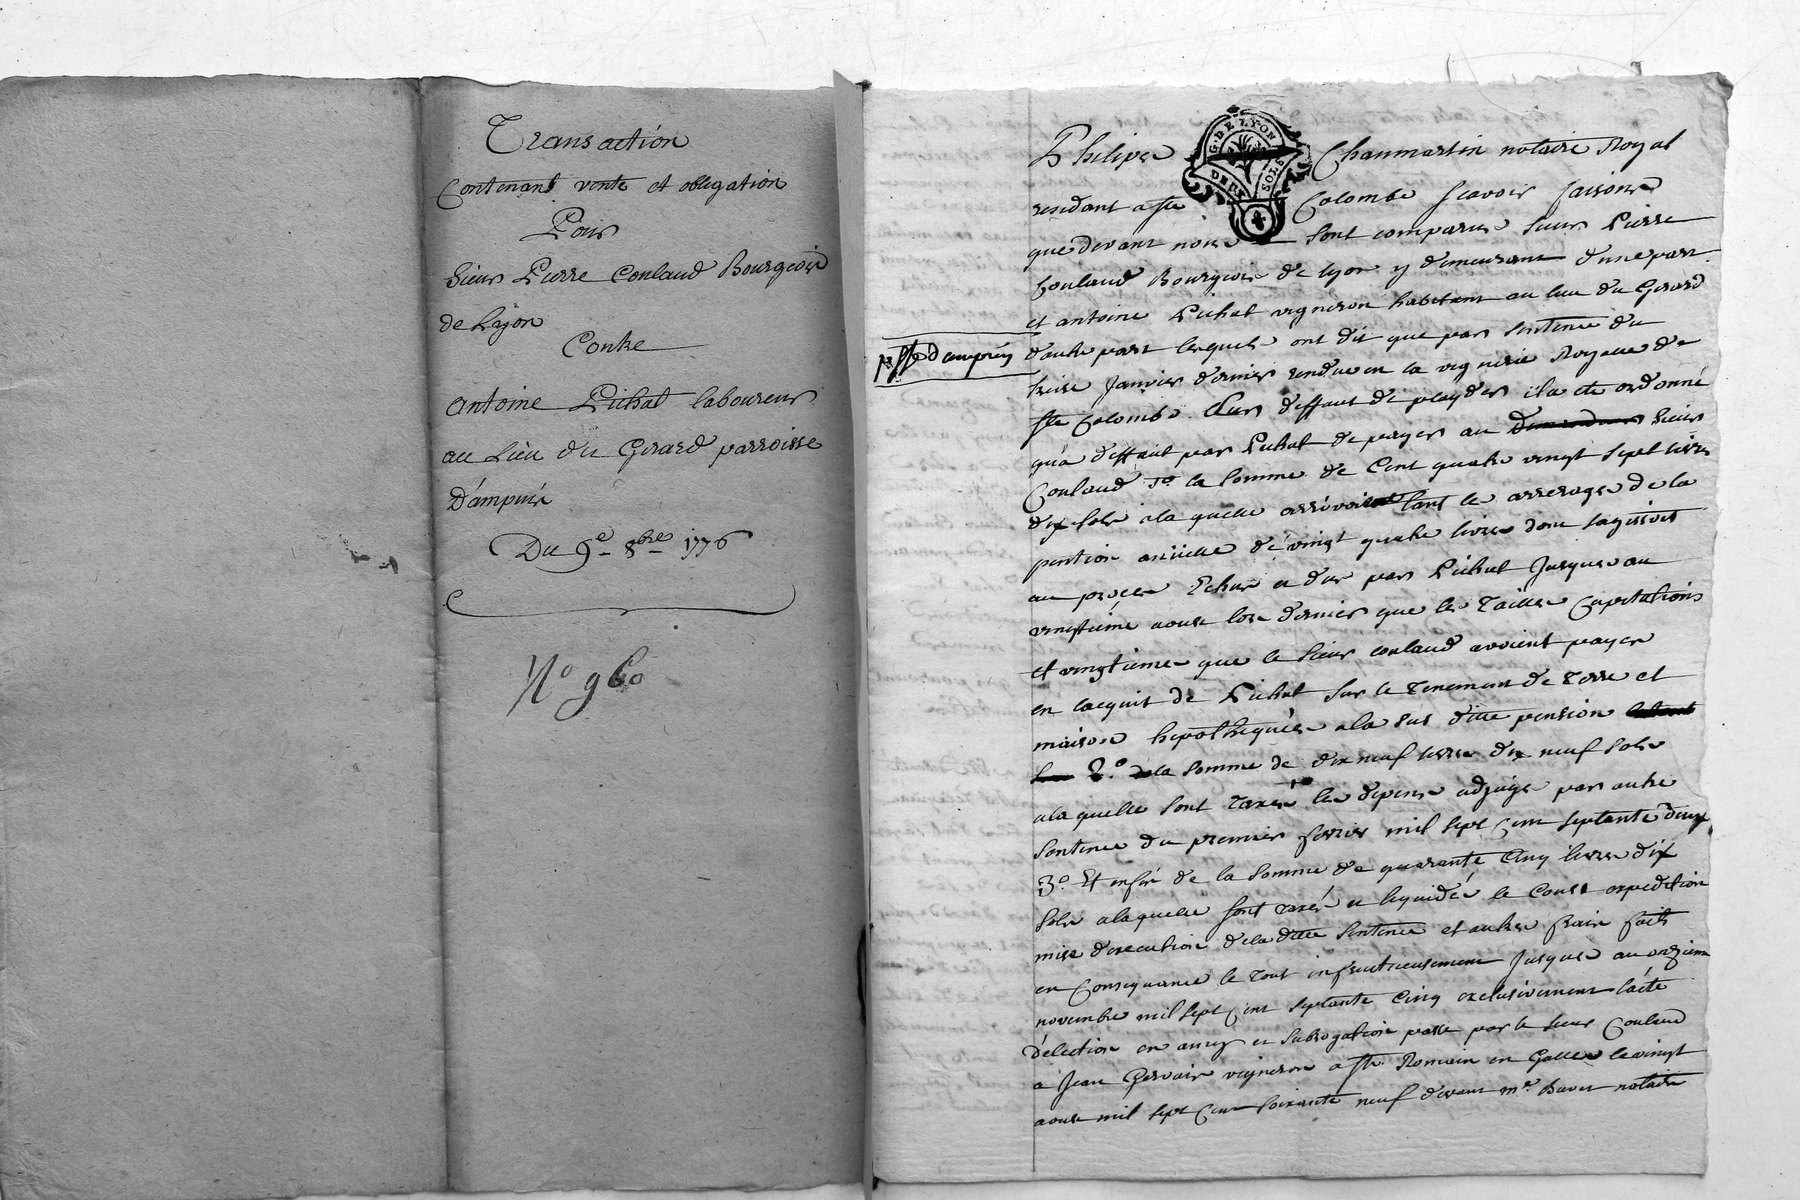 Transaction
Contenant vente et obligation
Pour
Sieur Pierre Coulaud Bourgeois
de Lyon
Contre
Antoine Pichat laboureur
au Lieu du Girard parroisse
D'ampuis
Du 9e 8bre 1776
N° 960
G. DE LYON
DEUX SOLS
Philipe Chaumartin notaire Royal
residant a Ste Colombe scavoir faisons
que devant nous sont comparus sieur Pierre
Coulaud Bourgeois de lyon y demeurant d'une part
et antoine Pichat vigneron habitant au lieu du Girard
psse d'ampuis
d'autre part lesquels ont dit que par sentence du
treise Janvier dernier rendue en la viguerie Royalle de
Ste Colombe sur deffaut de playder il a ete ordonné
qu'a deffaut par Pichat de payer au sieur
Coulaud 1° la somme de Cent quatre vingt sept livres
dix sols a la quelle arrivoit tant le arrerage de la
pention anüelle de vingt quatre livres dont sagissoit
au proces Echus et dus par Pichat Jusques au
vingtieme aoust lors dernier que les Tailles Capitations
et vingtiemes que le sieur coulaud avoient payer
en lacquit de Pichat sur le Tenement de Terre et
maison hipothequés a la sus ditte pension
2° de la somme de dix neuf livres dix neuf sols
a la quelle sont taxés les depens adjugé par autre
sentence du premier fevrier mil sept cent septante deux
3° Et enfin de la somme de quarante Cinq livres dix
sols a laquelle sont taxés et liquidé le Coust expedition
mise d'execution de la ditte sentence et autres frais faits
en Consequance le tout infructueusement Jusques au onzieme
novembre mil sept cent septante Cinq exclusivement l'acte
d'election en amy et subrogation passé par le sieur Coulaud
a Jean Gervais vigneron a St Romain en Galles le vingt
aoust mil sept cent soixante neuf devant me notaire